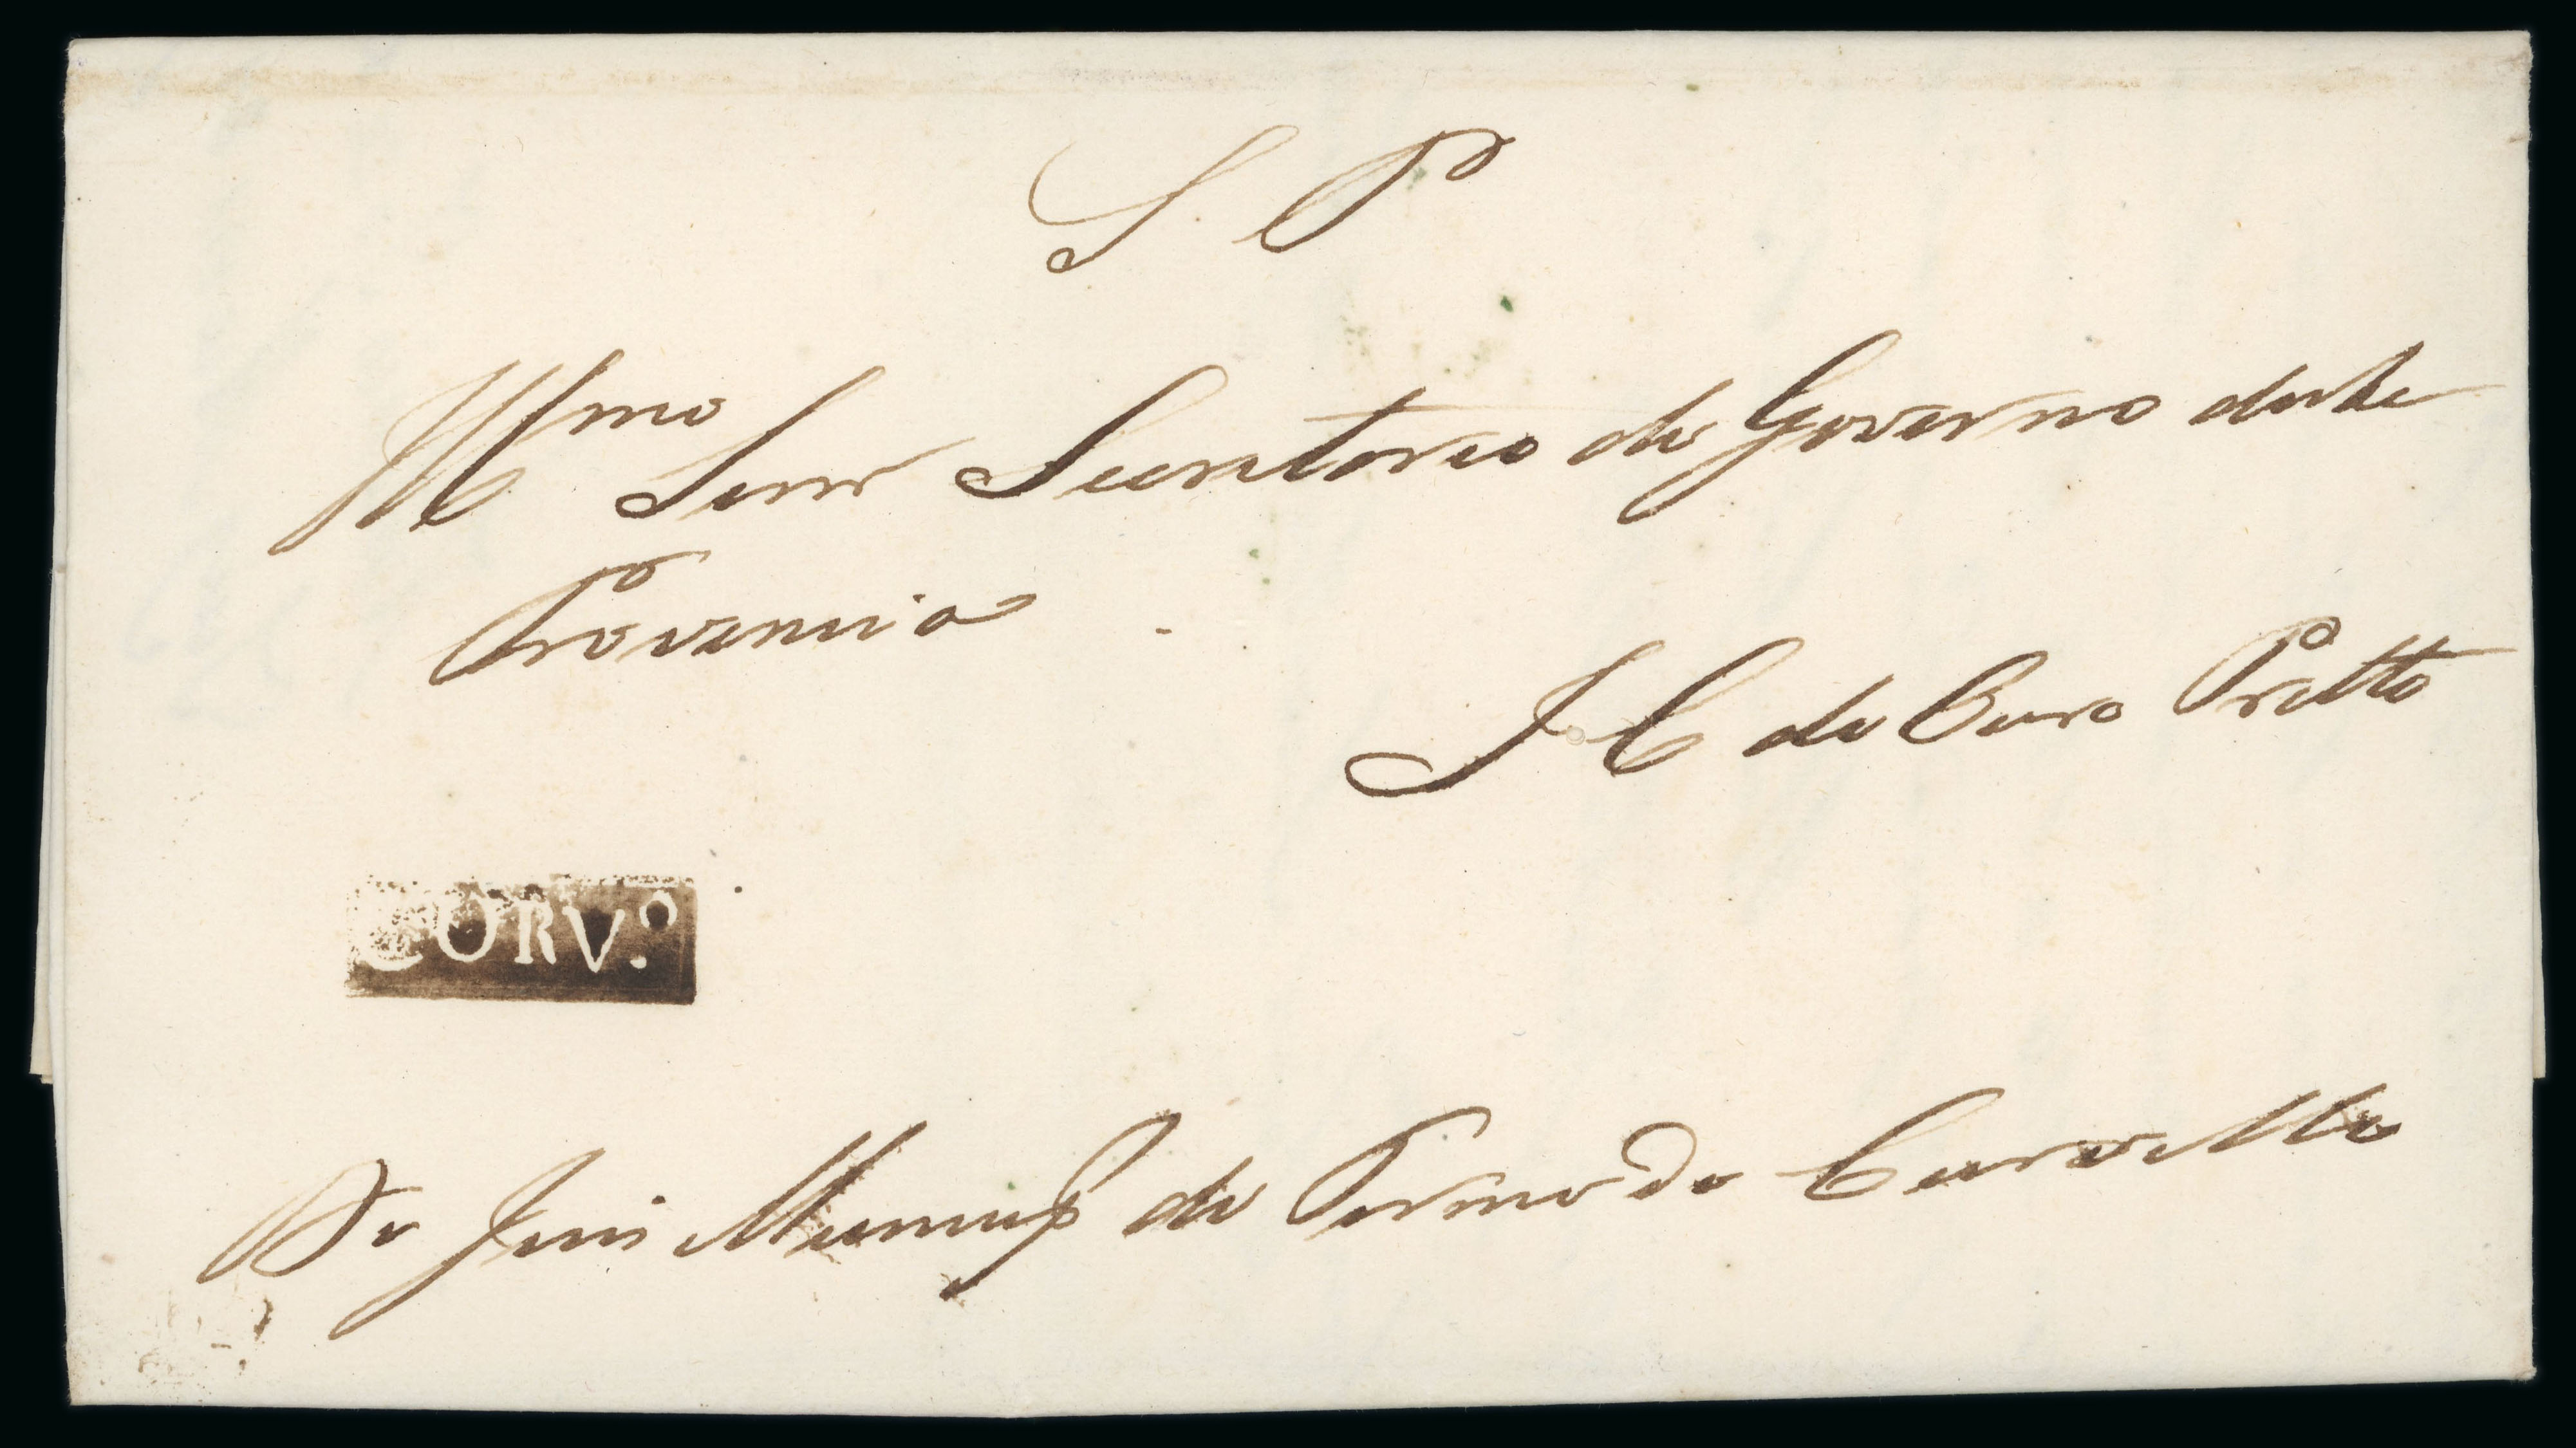 S. P
Illmo Senr Secretario do Governo desta
Provincia
I. C. do Ouro Pretto
CORVº.
Do Juis Municipl do Termo do Curvello